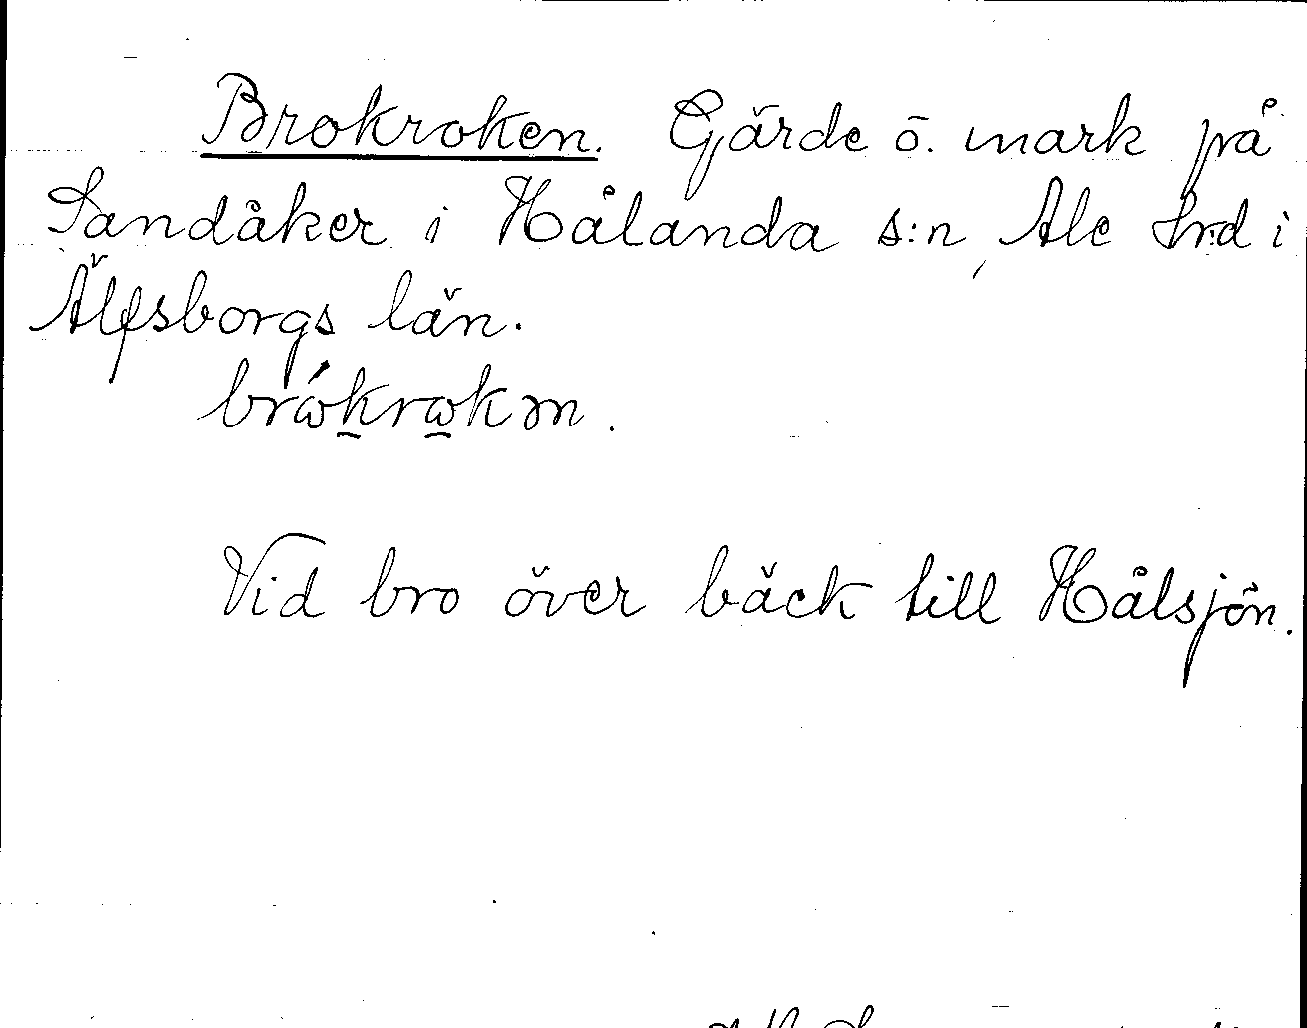 Brokroken. Gärde ö. mark på
Sandåker i Hålanda s:n, Ale hrd i
Älfsborgs län.
brώk̲rω̲kən.
Vid bro över bäck till Hålsjön.